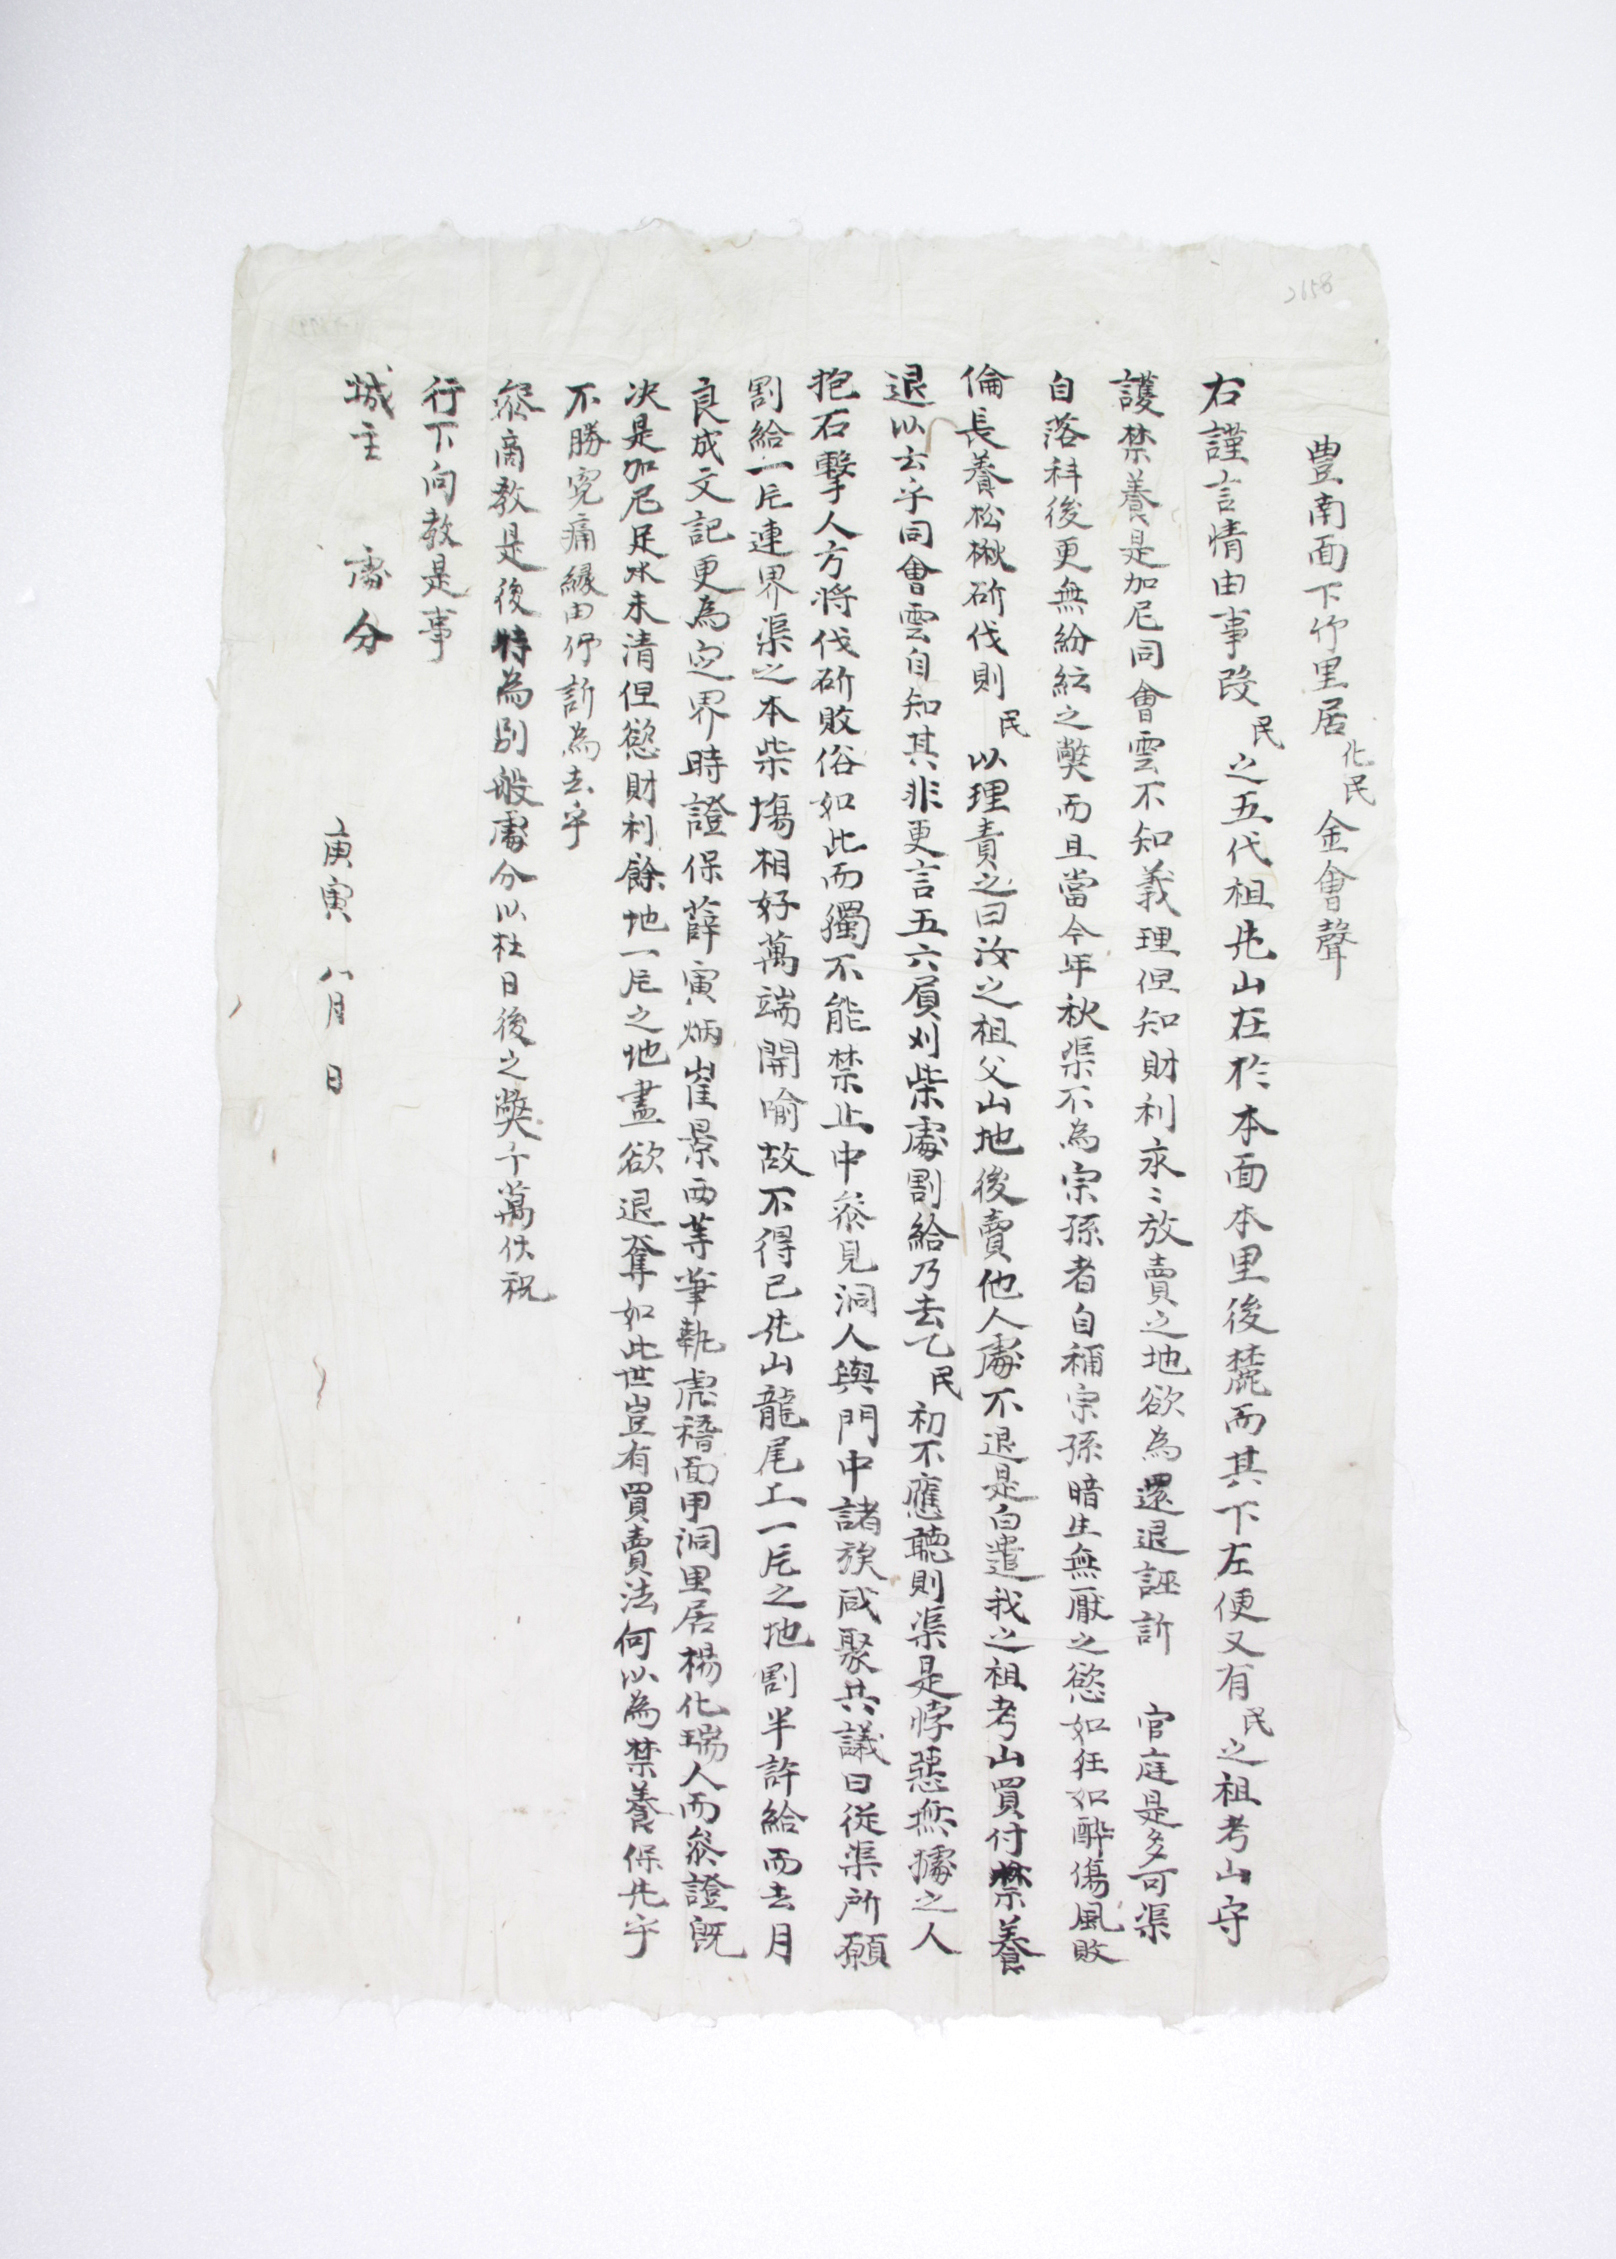 2658
豊南面下竹里居化民金會聲
右謹言情由事段民之五代祖先山在於本面本里後麓而其下左便又有民之祖考山守
護禁養是加尼同會雲不知義理但知財利永〻放賣之地欲為還退誣訴 官庭是多可渠
自落科後更無紛紜之弊而且當今年秋渠不為宗孫者自稱宗孫暗生無厭之慾如狂如醉傷風敗
倫長養松楸斫伐則民以理責之曰汝之祖父山地後賣他人處不退是白遣我之祖考山買付禁養
退以去乎同會雲自知其非更言五六負刈柴處割給乃去乙民初不應聽則渠是悖惡無據之人
抱石擊人方將伐斫敗俗如此而獨不能禁止中叅見洞人與門中諸族咸聚共議曰從渠所願
割給一片連界渠之本柴塲相好萬端開喻故不得已先山龍尾上一片之地割半許給而去月
良成文記更為定界時證保薛寅炳崔景西等筆執虎稽面甲洞里居楊化瑞人而叅證旣
决是加尼足水未清但慾財利餘地一片之地盡欲退奪如此世豈有買賣法何以為禁養保先乎
不勝寃痛緣由仰訴為去乎
叅商教是後特為別般處分以杜日後之弊千萬伏祝
行下向教是事
城主 處分
庚寅 八月 日